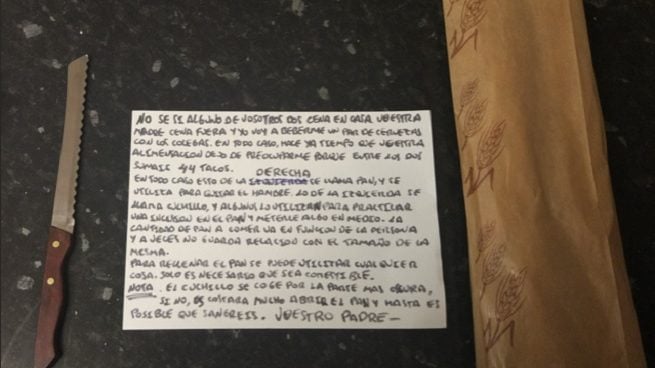 NO SE SI ALGUNO DE VOSOTROS DOS CENA EN CASA. VUESTRA
MADRE CENA FUERA Y YO VOY A BEBERME UN PAR DE CERVEZAS
CON LOS COLEGAS. EN TODO CASO, HACE YA TIEMPO QUE VUESTRA
ALIMENTACION DEJO DE PREOCUPARME PORQUE ENTRE LOS DOS
SUMAIS 44 TACOS.
DERECHA
EN TODO CASO ESTO DE LA IZQUIERDA SE LLAMA PAN, Y SE
UTILIZA PARA QUITAR EL HAMBRE. LO DE LA IZQUIERDA SE
LLAMA CUCHILLO, Y ALGUNOS LO UTILIZAN PARA PRACTICAR
UNA INCISION EN EL PAN Y METERLE ALGO EN MEDIO. LA
CANTIDAD DE PAN A COMER VA EN FUNCION DE LA PERSONA
Y A VECES NO GUARDA RELACION CON EL TAMAÑO DE LA
MISMA.
PARA RELLENAR EL PAN SE PUEDE UTILIZAR CUALQUIER
COSA. SOLO ES NECESARIO QUE SEA COMESTIBLE.
NOTA. EL CUCHILLO SE COGE POR LA PARTE MAS OSCURA,
SI NO, OS COSTARA MUCHO ABRIR EL PAN Y HASTA ES
POSIBLE QUE SANGREIS. VUESTRO PADRE—